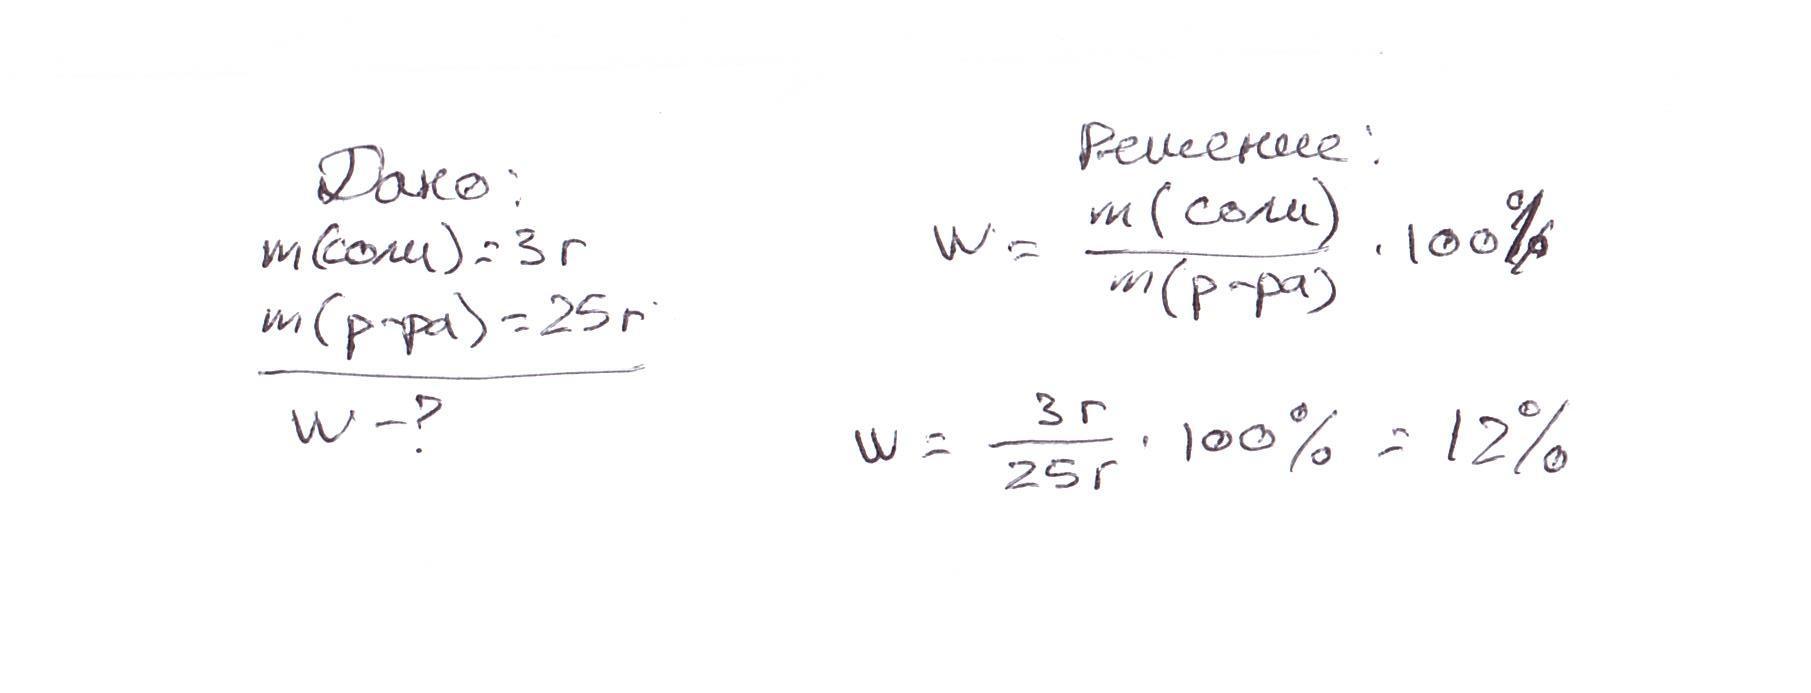 Дано:
m(соли) = 3 г
m(р-ра) = 25 г
W - ?
Решение:
W = m(соли) / m(р-ра) · 100%
W = 3 г / 25 г · 100% = 12%